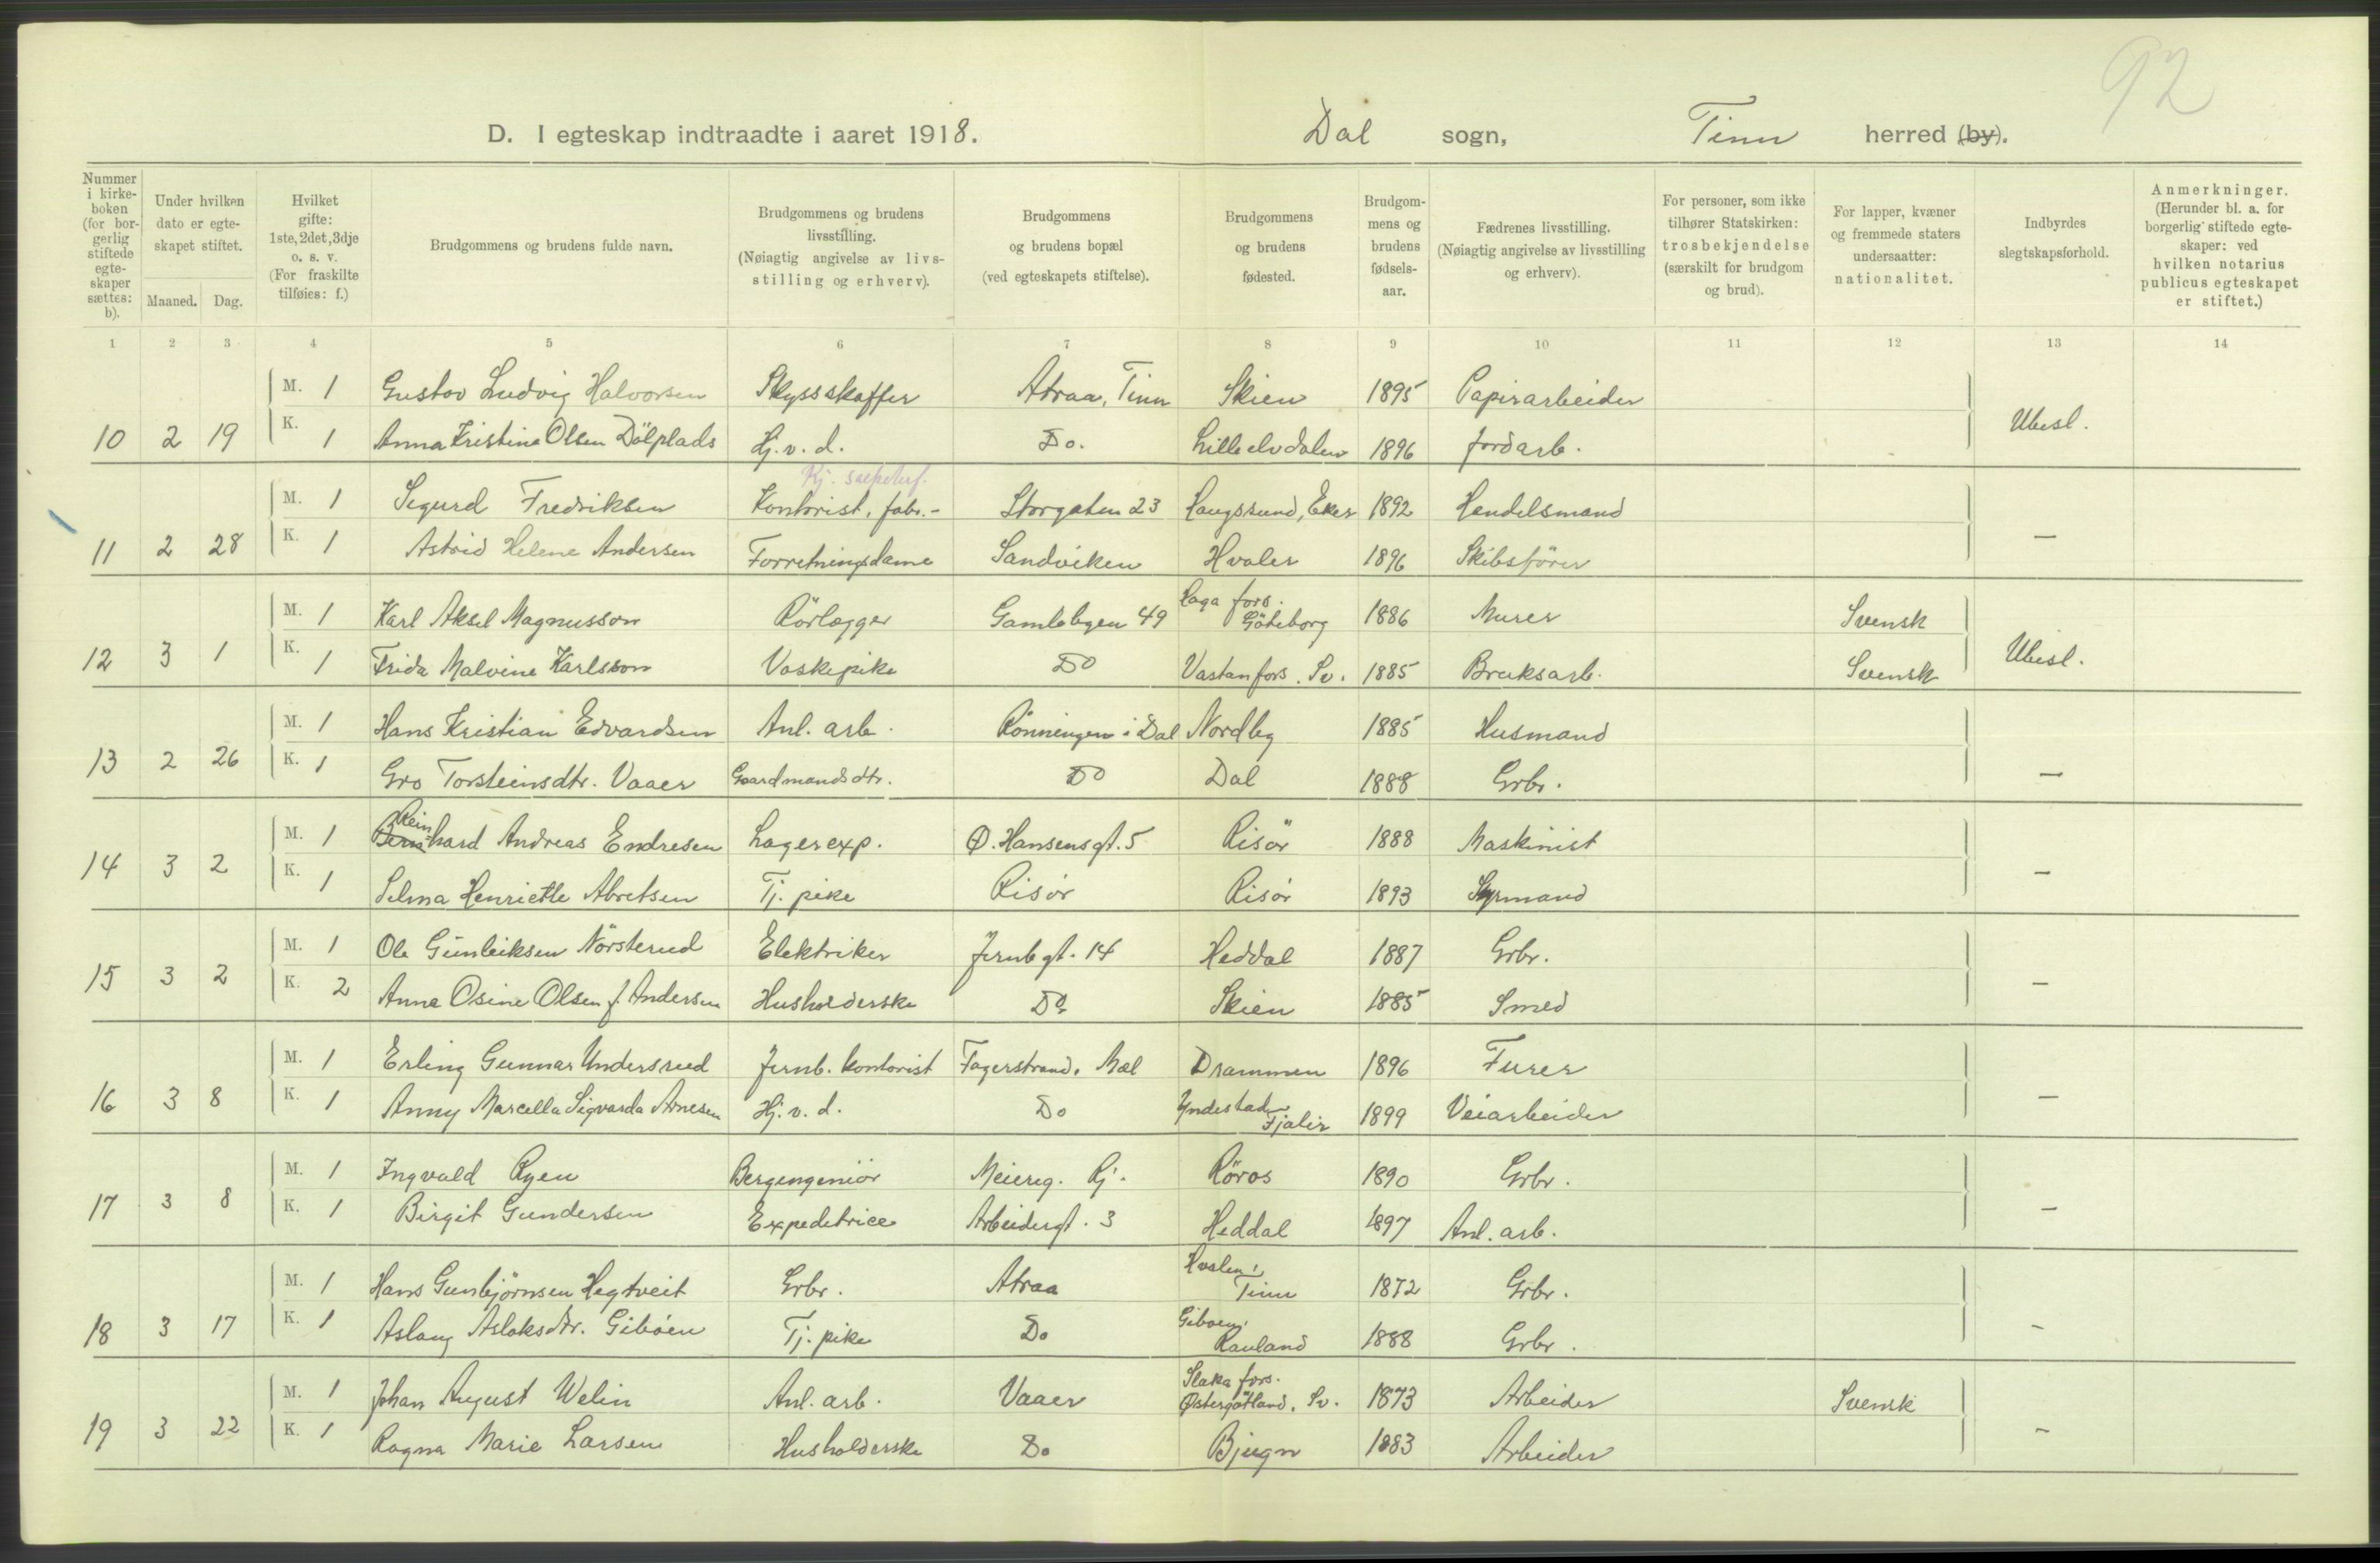 92
D. I egteskap indtraadte i aaret 1918. Dal sogn, Tinn herred (by).
Nummer i kirkeboken (for borgerlig stiftede egteskaper sættes: b).
Under hvilken dato er egteskapet stiftet.
Maaned. Dag.
Hvilket gifte: 1ste, 2det, 3dje o. s. v. (For fraskilte tilføies: f.)
Brudgommens og brudens fulde navn.
Brudgommens og brudens livsstilling. (Nøiagtig angivelse av livsstilling og erhverv).
Brudgommens og brudens bopæl (ved egteskapets stiftelse).
Brudgommens og brudens fødested.
Brudgommens og brudens fødselsaar.
Fædrenes livsstilling. (Nøiagtig angivelse av livsstilling og erhverv).
For personer, som ikke tilhører Statskirken: trosbekjendelse (særskilt for brudgom og brud).
For lapper, kvæner og fremmede staters undersaatter: nationalitet.
Indbyrdes slegtskapsforhold.
Anmerkninger. (Herunder bl. a. for borgerlig stiftede egteskaper: ved hvilken notarius publicus egteskapet er stiftet.)
1 2 3 4 5 6 7 8 9 10 11 12 13 14
M. 1 Gustav Ludvig Halvorsen Skyssskaffer Atraa, Tinn Skien 1895 Papirarbeider
10 2 19 K. 1 Anna Kristine Olsen Dölplads Hj. v. d. Do. Lilleelvdalen 1896 Jordarb. Ubesl.
Rj. salpeterf.
M. 1 Sigurd Fredriksen Kontorist, fabr.- Storgaten 23 Haugsund, Eker 1892 Handelsmand
11 2 28 K. 1 Astrid Helene Andersen Forretningsdame Sandviken Hvaler 1896 Skibsförer —
Haga fors.
M. 1 Karl Aksel Magnusson Rörlægger Gamlebyen 49 Göteborg 1886 Murer Svensk
12 3 1 K. 1 Frida Malvine Karlsson Vaskepike Do Vastanfors. Sv. 1885 Bruksarb. Svensk Ubesl.
M. 1 Hans Kristian Edvardsen Anl. arb. Rönningen i Dal Nordby 1885 Husmand
13 2 26 K. 1 Gro Torsteinsdtr. Vaaer Gaardmandsdtr. Do Dal 1888 Grbr. —
Rein
M. 1 Bernhard Andreas Endresen Lagerexp. Ø. Hansensgt. 5 Risör 1888 Maskinist
14 3 2 K. 1 Selma Henriette Abretsen Tj. pike Risör Risör 1893 Styrmand —
M. 1 Ole Gunleiksen Nörsterud Elektriker Jernbgt. 14 Heddal 1887 Grbr.
15 3 2 K. 2 Anne Osine Olsen f. Andersen Husholderske Do. Skien 1885 Smed —
M. 1 Erling Gunnar Undersrud Jernb. kontorist Fagerstrand. Mæl Drammen 1896 Furer
16 3 8 K. 1 Anny Marcella Sigvarda Arnesen Hj. v. d. Do Yndestad Fjaler 1899 Veiarbeider —
M. 1 Ingvald Ryen Bergingeniör Meiereg. Rj. Röros 1890 Grbr.
17 3 8 K. 1 Birgit Gundersen Expeditrice Arbeidergt. 3 Heddal 1897 Anl. arb. —
M. 1 Hans Gunbjörnsen Hegtveit Grbr. Atraa Tinn 1872 Grbr.
Giboen,
18 3 17 K. 1 Aslaug Aslaksdtr. Giböen Tj. pike Do Rauland 1888 Grbr. —
Slaka fors.
M. 1 Johan August Welin Anl. arb. Vaaer Østergötland. Sv. 1873 Arbeider Svensk
19 3 22 K. 1 Ragna Marie Larsen Husholderske Do Bjugn 1883 Arbeider —